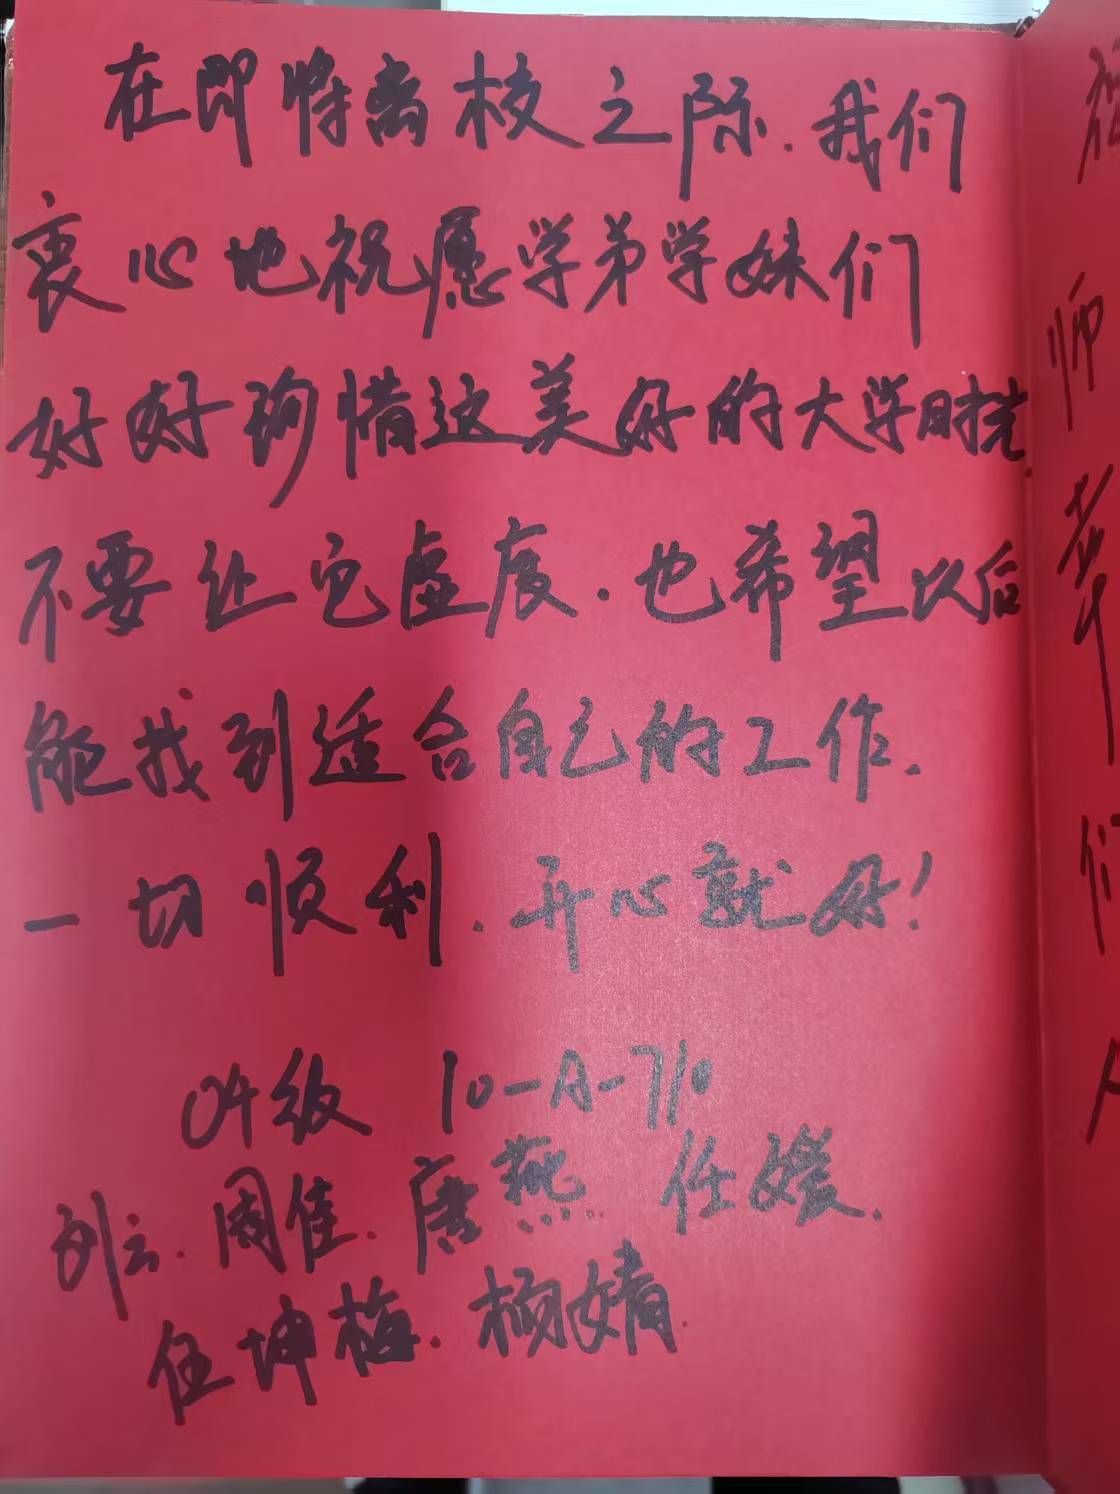 在即将离校之际.我们
衷心地祝愿学弟学妹们
好好珍惜这美好的大学时光.
不要让它虚度.也希望以后
能找到适合自己的工作.
一切顺利.开心就好!
04级 10-A-710
刘云.周佳.唐燕 任媛.
任坤梅.杨婧.
师
们